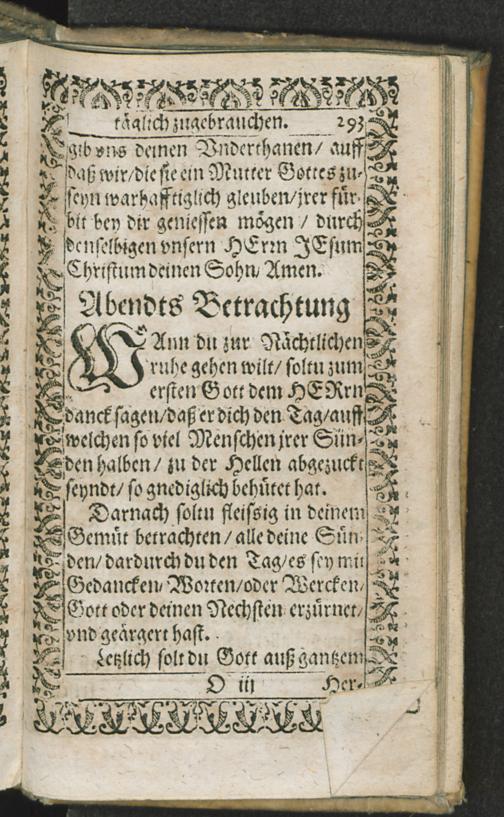 täglich zugebrauchen. 293
gib vns deinen Vnderthanen / auff
daß wir / die sie ein Mutter Gottes zu-
seyn warhafftiglich gleuben / jrer für-
bit bey dir geniessen mögen / durch
denselbigen vnsern HErrn JEsum
Christum deinen Sohn / Amen.
Abendts Betrachtung
WAnn du zur Nächtlichen
ruhe gehen wilt / soltu zum
ersten Gott dem HERrn
danck sagen / daß er dich den Tag / auff
welchen so viel Menschen jrer Sün-
den halben / zu der Hellen abgezuckt
seyndt / so gnediglich behütet hat.
Darnach soltu fleissig in deinem
Gemüt betrachten / alle deine Sün-
den / dardurch du den Tag / es sey mit
Gedancken / Worten / oder Wercken /
Gott oder deinen Nechsten erzürnet /
vnd geärgert hast.
Letzlich solt du Gott auß gantzem
O iij Her-